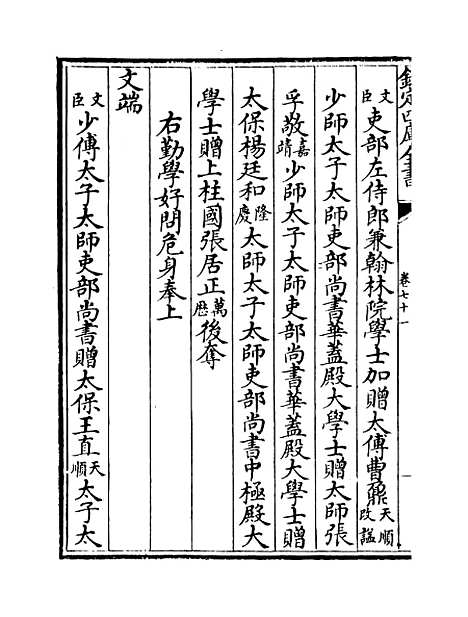 欽定四庫全書
卷七十一
文臣吏部左侍郎兼翰林院學士加贈太傅曹鼐天順改諡
少師太子太師吏部尚書華蓋殿大學士贈太師張
孚敬嘉靖少師太子太師吏部尚書華蓋殿大學士贈
太保楊廷和隆慶太師太子太師吏部尚書中極殿大
學士贈上柱國張居正萬曆後奪
右勤學好問危身奉上
文端
文臣少傅太子太師吏部尚書贈太保王直天順太子太